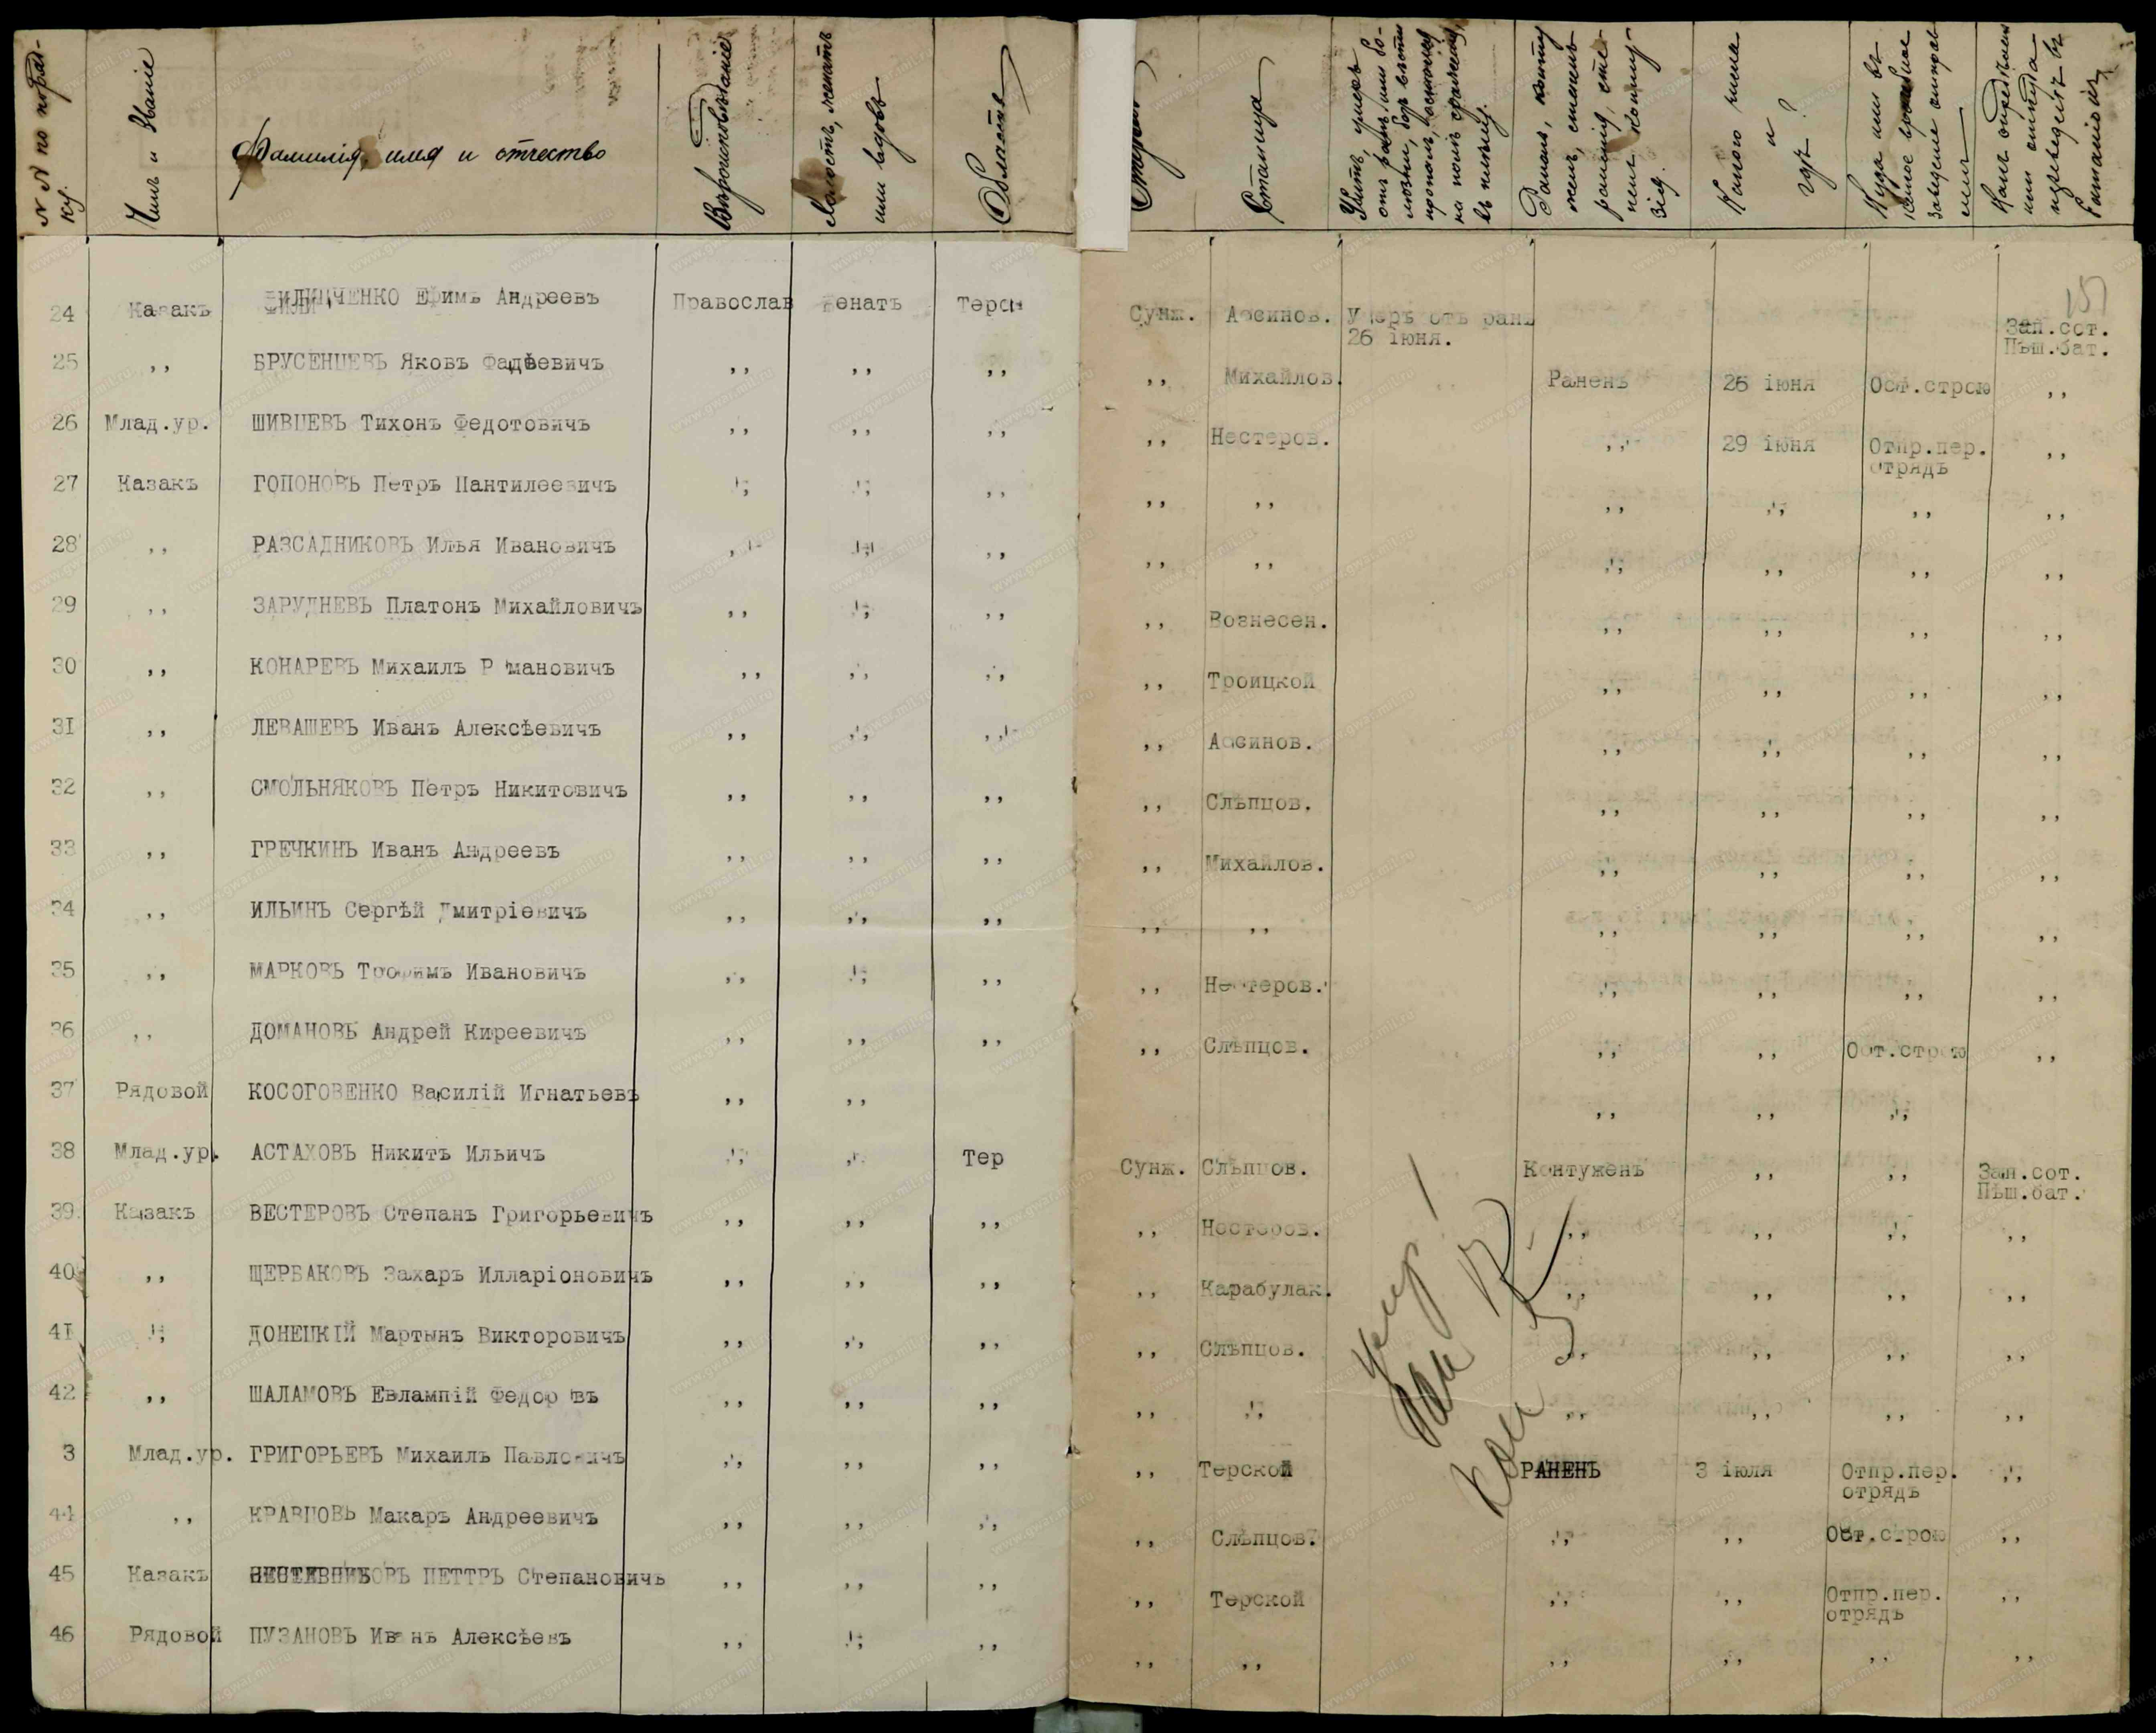 № № по поряд-
ку.
Чинъ и Званіе
Фамилія, имя и отчество
Вѣроисповѣданіе
Холостъ, женатъ
или вдовъ
Область
Станица
Убитъ, умеръ
отъ ранъ или бо-
лѣзни, безъ вѣсти
на полѣ сраженія,
въ плѣну.
Раненъ, контуженъ
Какого числа
и
гдѣ?
Куда или въ
заведеніе отправ
ленъ
151
24 Казакъ ФИЛИПЧЕНКО Ефимъ Андреевъ Православ Женатъ Терск Сунж. Ассинов. Умеръ отъ ранъ Зап.сот.
26 іюня. Пѣш.бат.
25 ,, БРУСЕНЦЕВЪ Яковъ Фадѣевичъ ,, ,, ,, ,, Михайлов. Раненъ 26 іюня Ост.строю ,,
26 Млад.ур. ШИВЦЕВЪ Тихонъ Федотовичъ ,, ,, ,, ,, Нестеров. ,, 29 іюня Отпр.пер. ,,
отрядъ
27 Казакъ ГОПОНОВЪ Петръ Пантилеевичъ ,, ,, ,, ,, ,, ,, ,, ,, ,,
28 ,, РАЗСАДНИКОВЪ Илья Ивановичъ ,, ,, ,, ,, ,, ,, ,, ,, ,,
29 ,, ЗАРУДНЕВЪ Платонъ Михайловичъ ,, ,, ,, ,, Вознесен. ,, ,, ,, ,,
30 ,, КОНАРЕВЪ Михаилъ Р мановичъ ,, ,, ,, ,, Троицкой ,, ,, ,, ,,
31 ,, ЛЕВАШЕВЪ Иванъ Алексѣевичъ ,, ,, ,, ,, Ассинов. ,, ,, ,, ,,
32 ,, СМОЛЬНЯКОВЪ Петръ Никитовичъ ,, ,, ,, ,, Слѣпцов. ,, ,, ,, ,,
33 ,, ГРЕЧКИНЪ Иванъ Андреевъ ,, ,, ,, ,, Михайлов. ,, ,, ,, ,,
34 ,, ИЛЬИНЪ Сергѣй Дмитріевичъ ,, ,, ,, ,, ,, ,, ,, ,, ,,
35 ,, МАРКОВЪ Трофимъ Ивановичъ ,, ,, ,, ,, Нестеров. ,, ,, ,, ,,
36 ,, ДОМАНОВЪ Андрей Киреевичъ ,, ,, ,, ,, Слѣпцов. ,, ,, Ост.строю ,,
37 Рядовой КОСОГОВЕНКО Василій Игнатьевъ ,, ,, ,, ,, ,,
38 Млад.ур. АСТАХОВЪ Никитъ Ильичъ ,, ,, Тер Сунж. Слѣпцов. Контуженъ ,, ,, Зап.сот.
Пѣш.бат.
39 Казакъ ВЕСТЕРОВЪ Степанъ Григорьевичъ ,, ,, ,, ,, Нестеров. ,, ,, ,, ,,
40 ,, ЩЕРБАКОВЪ Захаръ Илларіоновичъ ,, ,, ,, ,, Карабулак. ,, ,, ,, ,,
41 ,, ДОНЕЦКІЙ Мартынъ Викторовичъ ,, ,, ,, ,, Слѣпцов. ,, ,, ,, ,,
42 ,, ШАЛАМОВЪ Евлампій Федор въ ,, ,, ,, ,, ,, ,, ,, ,, ,,
3 Млад.ур. ГРИГОРЬЕВЪ Михаилъ Павловичъ ,, ,, ,, ,, Терской РАНЕНЪ 3 іюля Отпр.пер. ,,
отрядъ
44 ,, КРАВЦОВЪ Макаръ Андреевичъ ,, ,, ,, ,, Слѣпцов. ,, ,, Ост.строю ,,
45 Казакъ ПЕТТРЪ Степановичъ ,, ,, ,, ,, Терской ,, ,, Отпр.пер. ,,
отрядъ
46 Рядовой ПУЗАНОВЪ Иванъ Алексѣевъ ,, ,, ,, ,, ,, ,, ,, ,, ,,